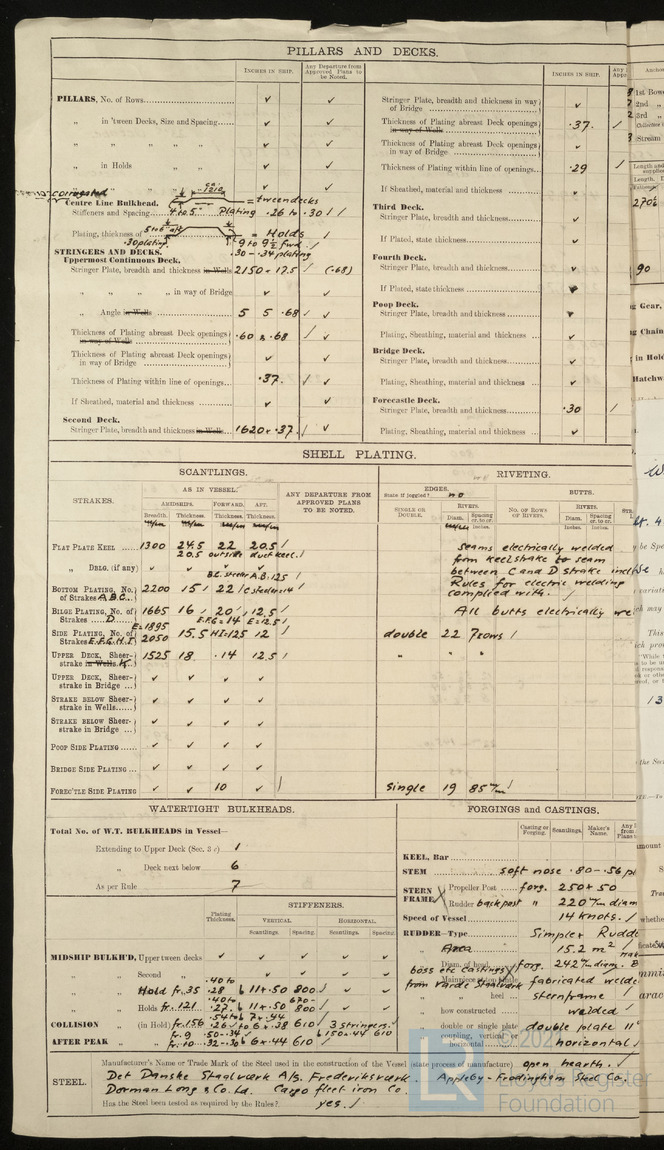 PILLARS AND DECKS.
INCHES IN SHIP.
Any Departure from Approved Plans to be Noted.
PILLARS, No. of Rows ✓ ✓
„ in 'tween Decks, Size and Spacing ✓ ✓
„ „ „ „ „ ✓ ✓
„ in Holds ✓ ✓
corrugated
Centre Line Bulkhead. = tweendecks
Stiffeners and Spacing 4 to 5 Plating .26 to .30 /
Plating, thickness of = Holds
.30 plating 9 to 9½ fwd.
STRINGERS AND DECKS. .30 - .34 plating
Uppermost Continuous Deck.
Stringer Plate, breadth and thickness in Wells 2150 × 17.5 / (.68)
„ „ „ „ in way of Bridge ✓ ✓
„ Angle in Wells 5 5 .68 / ✓
Thickness of Plating abreast Deck openings in way of Wells .60 & .68 / ✓
Thickness of Plating abreast Deck openings in way of Bridge ✓ ✓
Thickness of Plating within line of openings .37. ✓
If Sheathed, material and thickness ✓ ✓
Second Deck.
Stringer Plate, breadth and thickness in Wells 1620 × .37. / ✓
INCHES IN SHIP.
Stringer Plate, breadth and thickness in way of Bridge ✓
Thickness of Plating abreast Deck openings in way of Wells .37. /
Thickness of Plating abreast Deck openings in way of Bridge ✓
Thickness of Plating within line of openings .29 /
If Sheathed, material and thickness ✓
Third Deck.
Stringer Plate, breadth and thickness ✓
If Plated, state thickness ✓
Fourth Deck.
Stringer Plate, breadth and thickness ✓
If Plated, state thickness ✓
Poop Deck.
Stringer Plate, breadth and thickness ✓
Plating, Sheathing, material and thickness ✓
Bridge Deck.
Stringer Plate, breadth and thickness ✓
Plating, Sheathing, material and thickness ✓
Forecastle Deck.
Stringer Plate, breadth and thickness .30 /
Plating, Sheathing, material and thickness ✓
SHELL PLATING.
SCANTLINGS.
STRAKES.
AS IN VESSEL.
AMIDSHIPS. FORWARD. AFT.
Breadth. Thickness. Thickness. Thickness.
ANY DEPARTURE FROM APPROVED PLANS TO BE NOTED.
FLAT PLATE KEEL 1300 24.5 22 20.5 /
20.5 outside duct keel. /
„ DBLG. (if any) ✓ ✓ ✓ ✓
BOTTOM PLATING, No. of Strakes A.B.C. 2200 15 / 22 /
BILGE PLATING, No. of Strakes D 1665 16 / 20 / 12.5 /
E=1895 E.F.G=14 E=12.5 /
SIDE PLATING, No. of Strakes E.F.G.H.I 2050 15.5 HI=125 12 /
UPPER DECK, Sheerstrake in Wells K. 1525 18 .14 12.5 /
UPPER DECK, Sheerstrake in Bridge ✓ ✓ ✓ ✓
STRAKE BELOW Sheerstrake in Wells ✓ ✓ ✓ ✓
STRAKE BELOW Sheerstrake in Bridge ✓ ✓ ✓ ✓
POOP SIDE PLATING ✓ ✓ ✓ ✓
BRIDGE SIDE PLATING ✓ ✓ ✓ ✓
FOREC'TLE SIDE PLATING ✓ ✓ 10 ✓ /
RIVETING.
EDGES.
State if joggled? no
SINGLE OR DOUBLE.
RIVETS.
Diam. Spacing cr. to cr.
Inches.
BUTTS.
NO. OF ROWS OF RIVETS.
RIVETS.
Diam. Spacing cr. to cr.
Inches. Inches.
Seams electrically welded
from keelstrake to seam
between C and D strake
Rules for electric welding
complied with. /
All butts electrically
double 22 7 rows /
„ „
single 19 85 m/m /
WATERTIGHT BULKHEADS.
Total No. of W.T. BULKHEADS in Vessel—
Extending to Upper Deck (Sec. 3 c) 1
„ Deck next below 6
As per Rule 7
Plating Thickness.
STIFFENERS.
VERTICAL. HORIZONTAL.
Scantlings. Spacing. Scantlings. Spacing.
MIDSHIP BULKH'D, Upper tween decks ✓ ✓ ✓ ✓ ✓
„ „ Second „ ✓ ✓ ✓ ✓
„ „ Hold fr. 35 .40 to .28 11 × .50 800 ✓ ✓
„ „ Holds fr. 121 .40 to .27 11 × .50 670 - 800 ✓ ✓
COLLISION „ (in Hold) fr. 156 .54 to .26 7 × .44 to 6 × .38 610 3 stringers
AFTER PEAK „ fr. 9 .50-.34 150×.44 610
fr. 10 .32-.30 6 × .44 610 /
FORGINGS and CASTINGS.
Casting or Forging. Scantlings. Maker's Name.
KEEL, Bar
STEM soft nose .80-.56
STERN FRAME Propeller Post forg. 250 × 50
Rudder backpost „ 220 m/m diam
Speed of Vessel 14 knots. /
RUDDER—Type Simplex
„ Area 15.2 m² /
„ Diam. of head forg. 242 m/m diam.
boss etc castings
from Varde Staalværk fabricated
„ heel sternframe /
„ how constructed welded /
„ double or single plate double plate
„ coupling, vertical or horizontal horizontal /
STEEL.
Manufacturer's Name or Trade Mark of the Steel used in the construction of the Vessel (state process of manufacture) open hearth. /
Det Danske Staalværk A/S. Frederiksværk. Appleby-Frodingham Steel Co.
Dorman Long & Co Ld. Cargo fleet iron Co.
Has the Steel been tested as required by the Rules? yes. /
LR
© 202
Lloyd's Register
Foundation